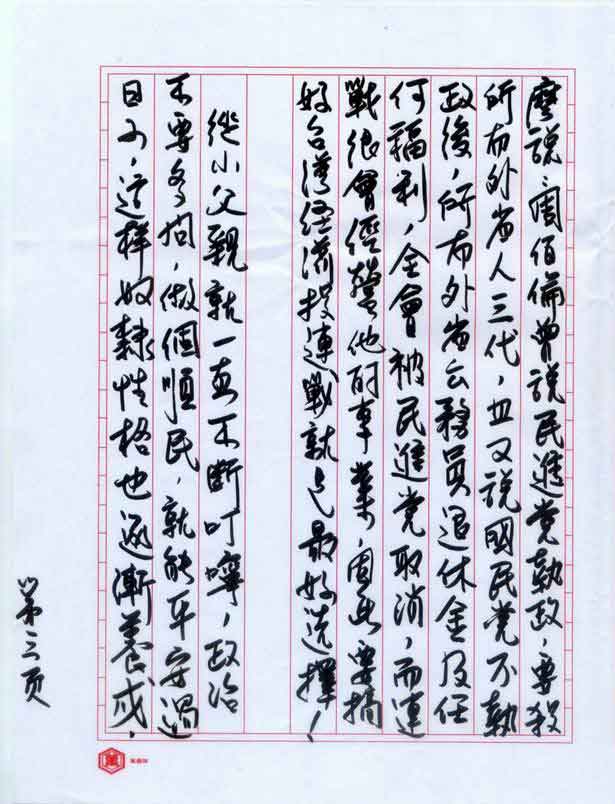 麼說，周伯倫曾說民進党執政，要殺
所有外省人三代，且又說國民党不執
政後，所有外省公務員退休金及任
何福利，全會被民進党取消，而連
戰很會經營他的事業，因此要搞
好台灣经济投連戰就是最好选擇！
從小父親就一直不斷叮嚀，政治
不要多问，做個順民，就能平安過
日子，这样奴隸性格也逐漸養成，
第三页